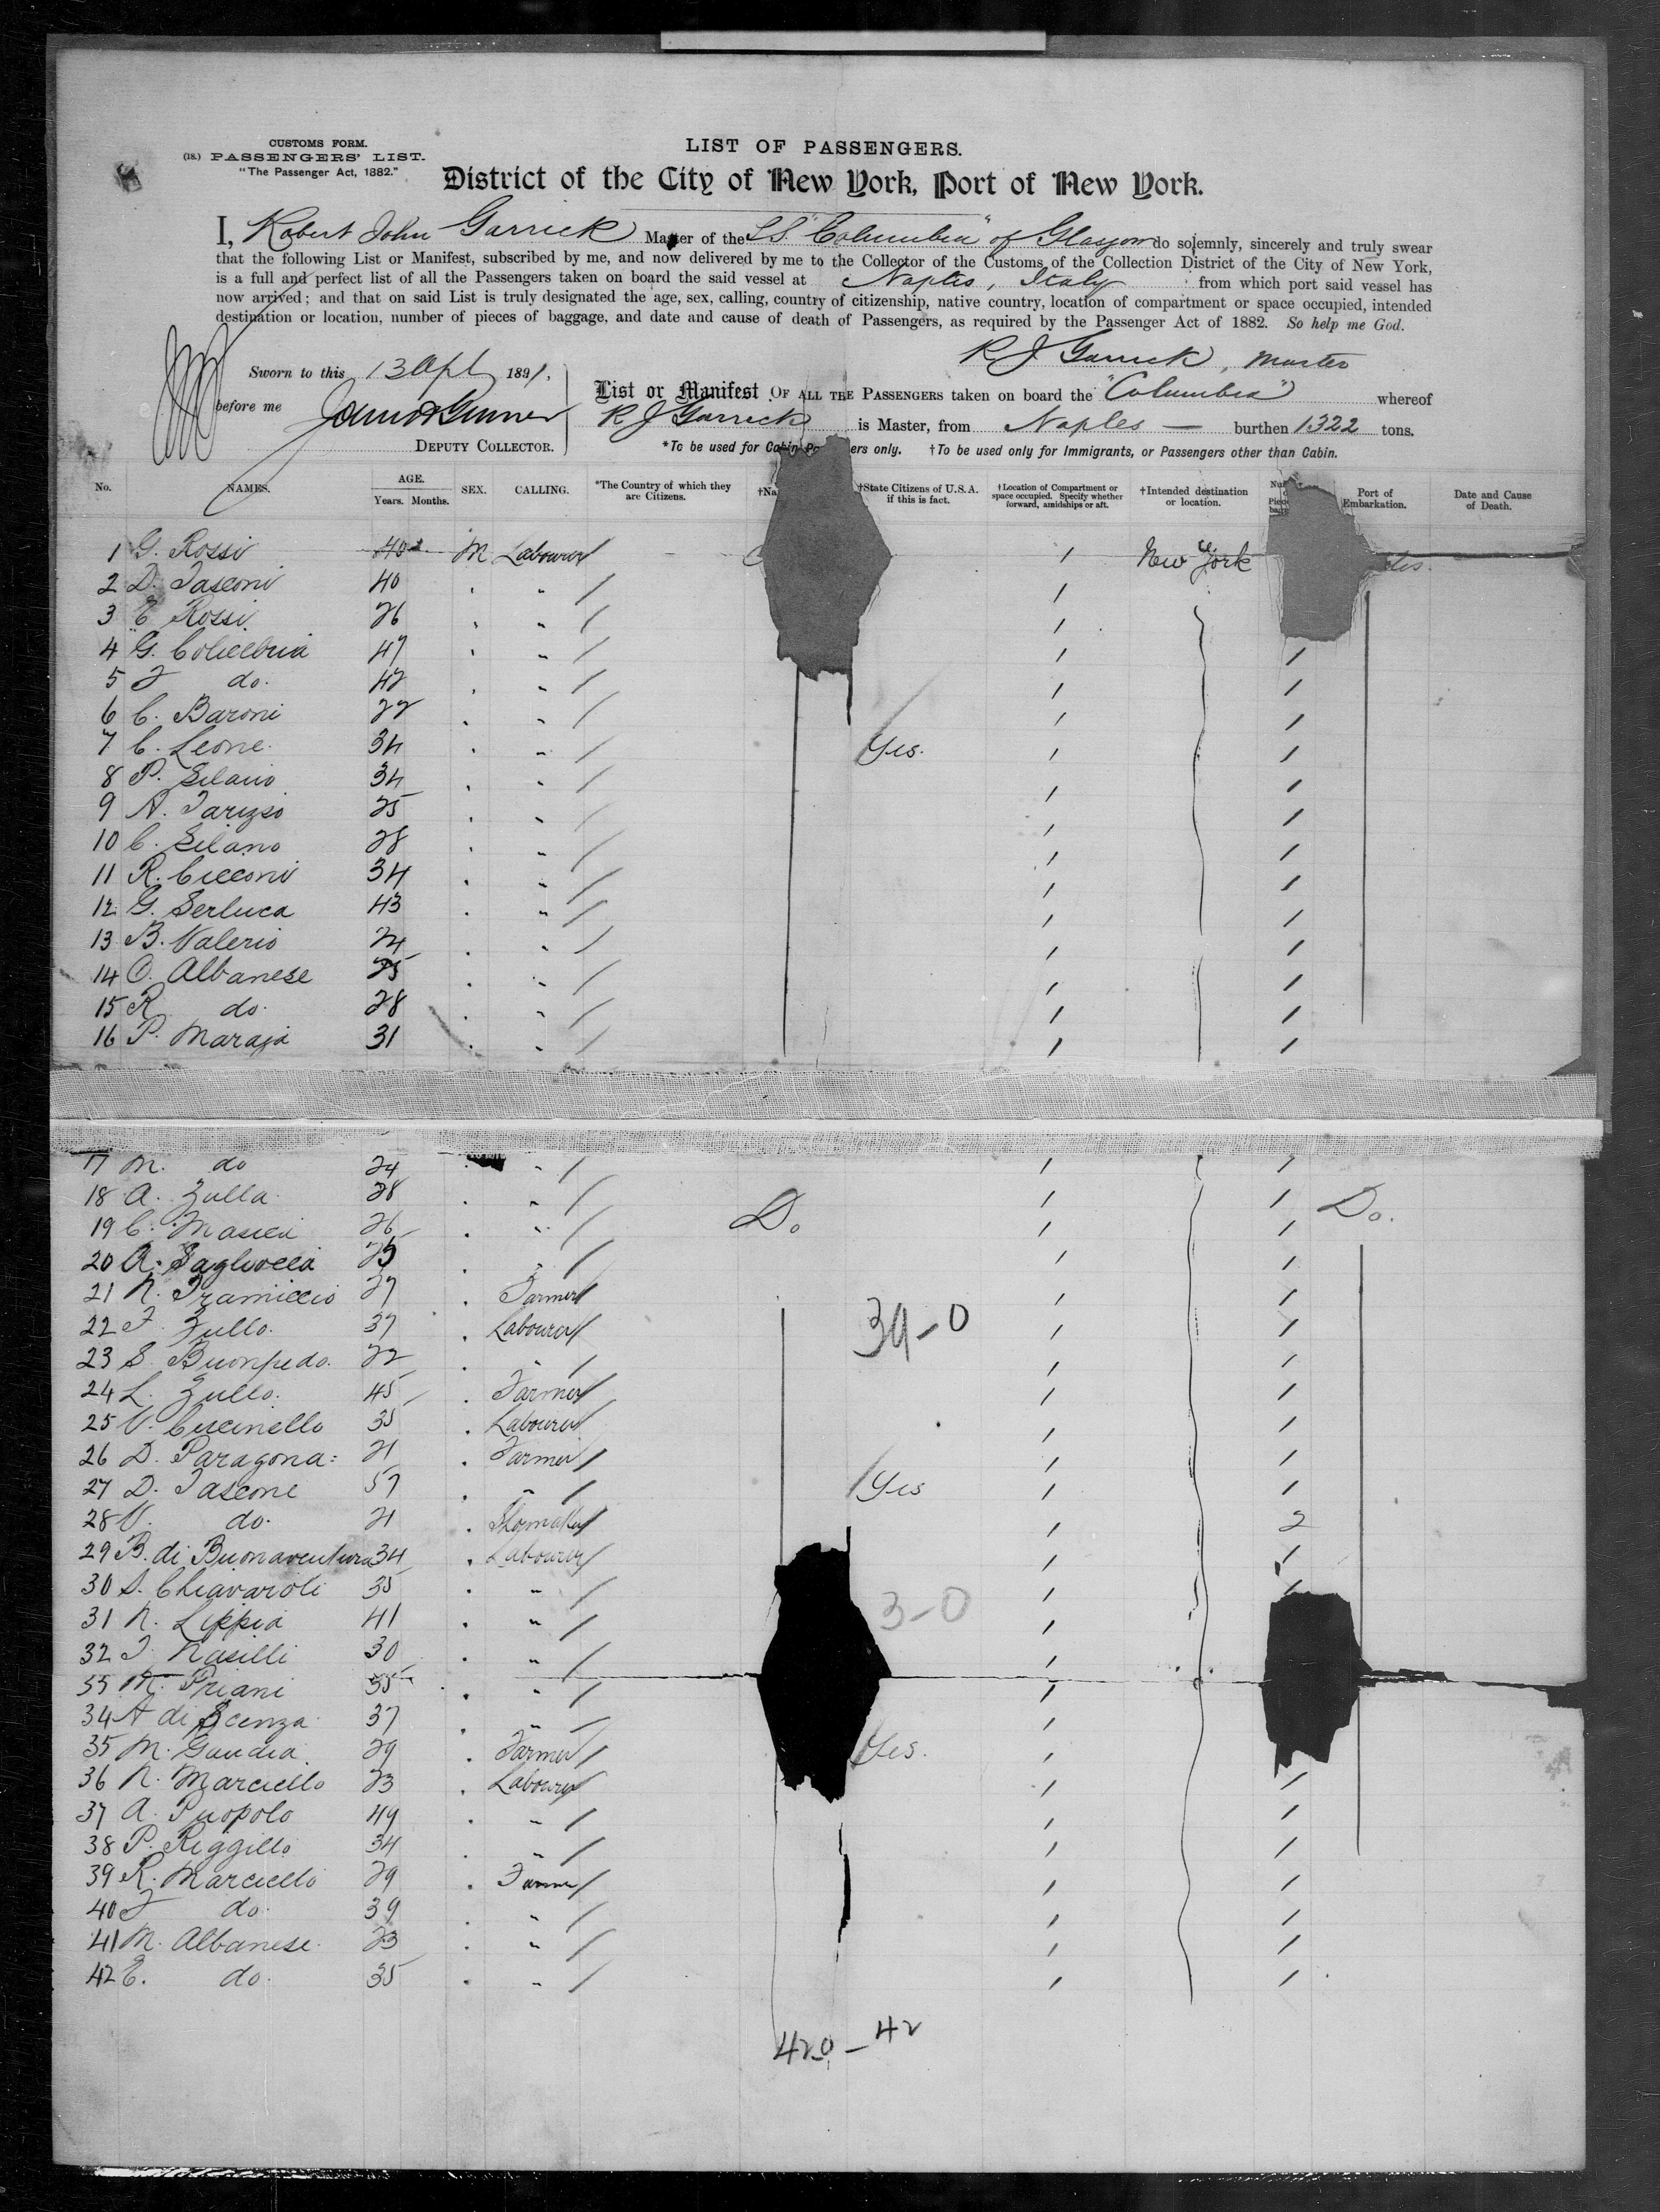 CUSTOMS FORM.
(18.) PASSENGERS' LIST.
"The Passenger Act, 1882."
LIST OF PASSENGERS.
District of the City of New York, Port of New York.
I, Robert John Garrick Master of the S.S. "Columbia" of Glasgow do solemnly, sincerely and truly swear
that the following List or Manifest, subscribed by me, and now delivered by me to the Collector of the Customs of the Collection District of the City of New York,
is a full and perfect list of all the Passengers taken on board the said vessel at Naples, Italy from which port said vessel has
now arrived; and that on said List is truly designated the age, sex, calling, country of citizenship, native country, location of compartment or space occupied, intended
destination or location, number of pieces of baggage, and date and cause of death of Passengers, as required by the Passenger Act of 1882. So help me God.
R J Garrick, Master
Sworn to this 13 Apl 1891,
before me
DEPUTY COLLECTOR.
List or Manifest OF ALL THE PASSENGERS taken on board the "Columbia" whereof
R J Garrick is Master, from Naples — burthen 1322 tons.
*To be used for Cabin ers only. †To be used only for Immigrants, or Passengers other than Cabin.
No. NAMES. AGE. Years. Months. SEX. CALLING. *The Country of which they are Citizens. †Na †State Citizens of U.S.A. if this is fact. †Location of Compartment or space occupied. Specify whether forward, amidships or aft. †Intended destination or location. Port of Embarkation. Date and Cause of Death.
1 G. Rossi 40 M Labourer / New York
2 D. Tasconi 40 . " /
3 E Rossi 26 . " /
4 G. 47 . " / /
5 F do. 42 . " / /
6 C. Baroni 22 . " / /
7 C. Leone 34 . " / Yes. /
8 P. Silano 34 . " / /
9 A. 25 . " / /
10 C. Silano 28 . " / /
11 R. Cicconi 34 . " / /
12 G. Serluca 43 . " / /
13 B. Valerio 24 . " / /
14 O. Albanese 25 . " / /
15 R do. 28 . " / /
16 P. Maraja 31 . " / /
17 M. do 24 . " / /
18 A. Zulla 28 . " / / Do.
19 C. Masica 26 . " Do / /
20 A. Sagliocca 25 . " / /
21 N. Tramiccio 27 . Farmer / /
22 F. Zullo. 37 . Labourer 39-0 / /
23 S. Buonpedo. 22 . " / /
24 L. Zullo. 45 . Farmer / /
25 V. Cuccinello 35 . Labourer / /
26 D. Paragona 21 . Farmer / /
27 D. Tascone 57 . " Yes / /
28 V. do. 21 . Shoemaker / 2
29 B. di Buonaventura 34 . Labourer / /
30 S. Chiavaroli 35 . " /
31 N. Lippia 41 . " 3-0 /
32 T. Nasilli 30 . " /
33 M. Priani 35 . " /
34 A di Scenza 37 . " /
35 M. Gaudia 29 . Farmer Yes. /
36 N. Marciello 23 . Labourer / /
37 A. Puopolo 49 . " / /
38 P. Riggillo 34 . " / /
39 R. Marciello 29 . Farmer / /
40 F do. 39 . " / /
41 M. Albanese 23 . " / /
42 E. do. 35 . " / /
42-0 - 42